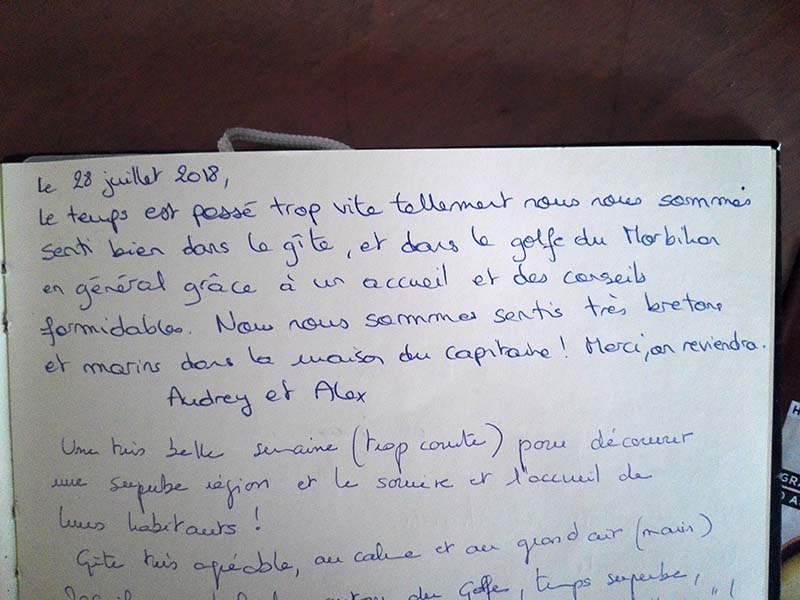 le 28 juillet 2018,
le temps est passé trop vite tellement nous nous sommes
senti bien dans le gîte, et dans le golfe du Morbihan
en général grâce à un accueil et des conseils
formidables. Nous nous sommes sentis très bretons
et marins dans la maison du capitaine ! Merci, on reviendra.
Audrey et Alex
Une très belle semaine (trop courte) pour découvrir
une superbe région et le sourire et l'accueil de
leurs habitants !
Gîte très agréable, au calme et au grand air (marin)
du Golfe, temps superbe,